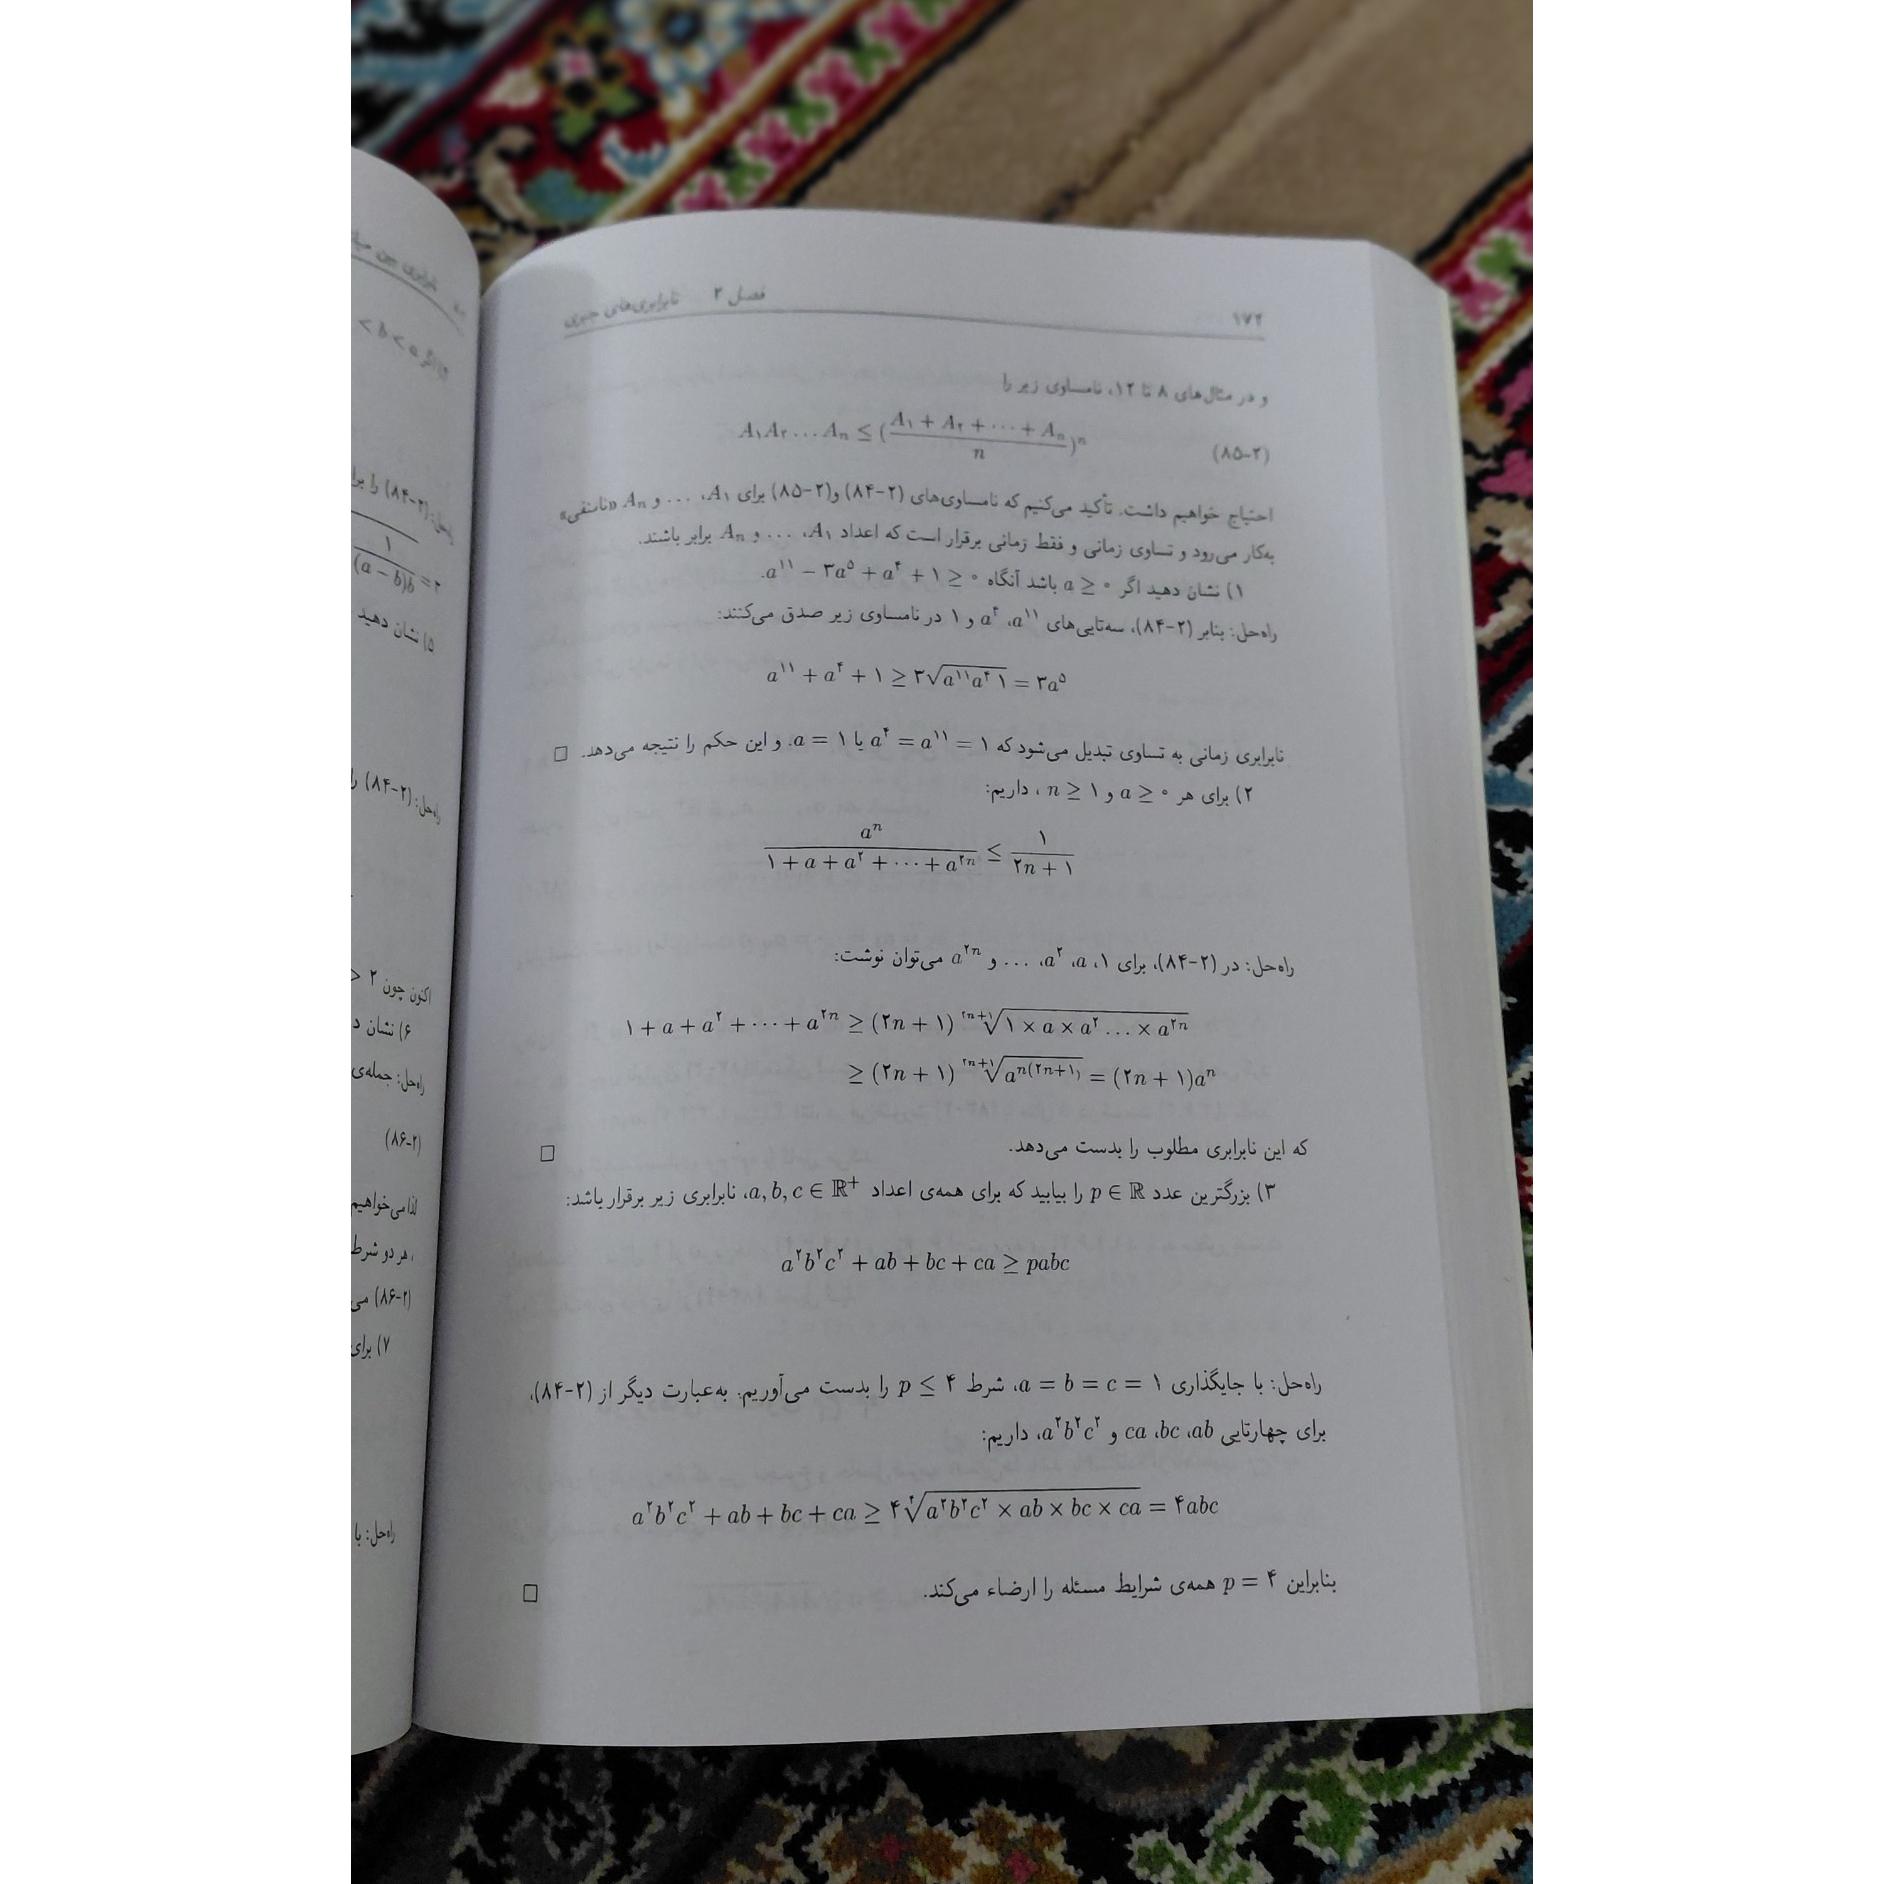 ۱۷۲ فصل ۲ نابرابری‌های جبری
و در مثال‌های ۸ تا ۱۲، نامساوی زیر را
(۲-۸۵) A₁A₂ … Aₙ ≤ ((A₁ + A₂ + ⋯ + Aₙ)/n)ⁿ
احتیاج خواهیم داشت. تأکید می‌کنیم که نامساوی‌های (۲-۸۴) و(۲-۸۵) برای A₁، … و Aₙ «نامنفی»
به‌کار می‌رود و تساوی زمانی و فقط زمانی برقرار است که اعداد A₁، … و Aₙ برابر باشند.
۱) نشان دهید اگر a ≥ ۰ باشد آنگاه a¹¹ − ۳a⁵ + a⁴ + ۱ ≥ ۰.
راه‌حل: بنابر (۲-۸۴)، سه‌تایی‌های a¹¹، a⁴ و ۱ در نامساوی زیر صدق می‌کنند:
a¹¹ + a⁴ + ۱ ≥ ۳√(a¹¹a⁴۱) = ۳a⁵
نابرابری زمانی به تساوی تبدیل می‌شود که a⁴ = a¹¹ = ۱ یا a = ۱. و این حکم را نتیجه می‌دهد. □
۲) برای هر a ≥ ۰ و n ≥ ۱ ، داریم:
aⁿ/(۱ + a + a² + ⋯ + a²ⁿ) ≤ ۱/(۲n + ۱)
راه‌حل: در (۲-۸۴)، برای ۱، a، a²، … و a²ⁿ می‌توان نوشت:
۱ + a + a² + ⋯ + a²ⁿ ≥ (۲n + ۱) ²ⁿ⁺¹√(۱ × a × a² … × a²ⁿ)
≥ (۲n + ۱) ²ⁿ⁺¹√(aⁿ⁽²ⁿ⁺¹⁾) = (۲n + ۱)aⁿ
که این نابرابری مطلوب را بدست می‌دهد. □
۳) بزرگترین عدد p ∈ ℝ را بیابید که برای همه‌ی اعداد a, b, c ∈ ℝ⁺، نابرابری زیر برقرار باشد:
a²b²c² + ab + bc + ca ≥ pabc
راه‌حل: با جایگذاری a = b = c = ۱، شرط p ≤ ۴ را بدست می‌آوریم. به‌عبارت دیگر از (۲-۸۴)،
برای چهارتایی ab، bc، ca و a²b²c²، داریم:
a²b²c² + ab + bc + ca ≥ ۴ ⁴√(a²b²c² × ab × bc × ca) = ۴abc
بنابراین p = ۴ همه‌ی شرایط مسئله را ارضاء می‌کند. □
(۲-۸۴) را
۵) نشان دهید
راه‌حل: (۲-۸۴)
اکنون چون ۲
۶) نشان
راه‌حل: جمله‌ی
(۲-۸۶)
لذا می‌خواهیم
، هر دو شرط
(۲-۸۶)
۷) برای
راه‌حل: با